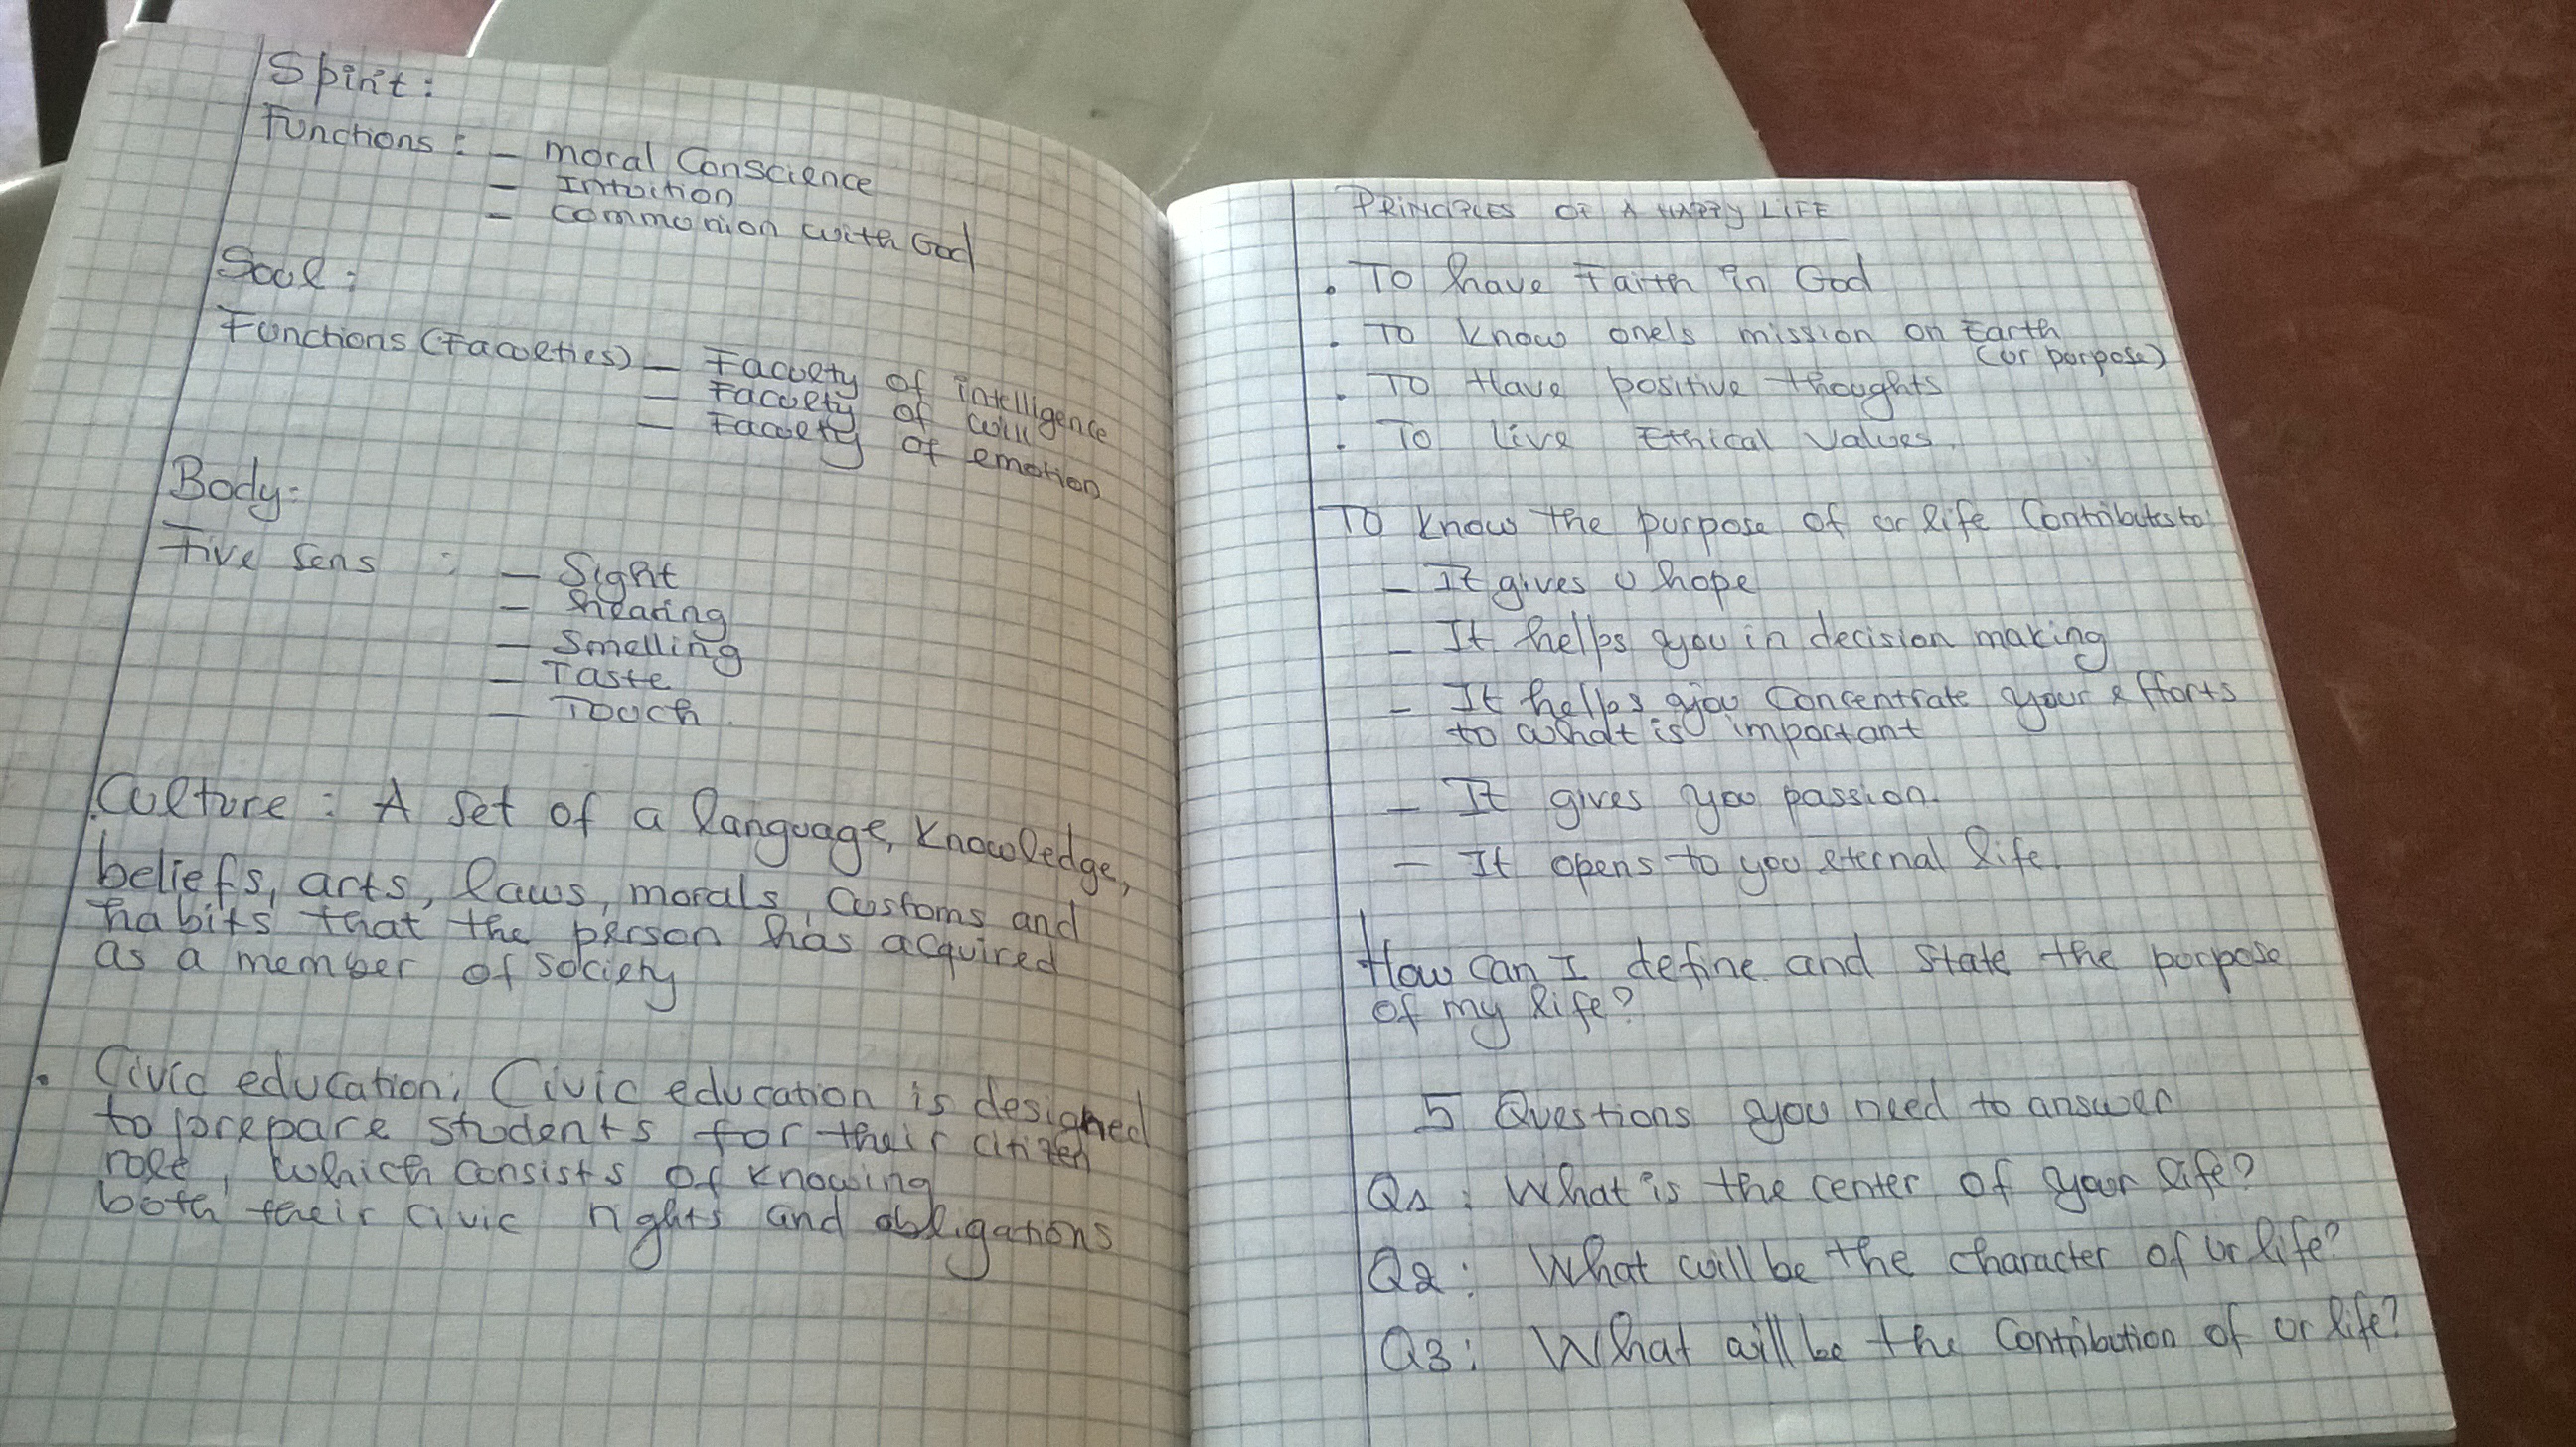 Spirit:
Functions: - moral Conscience
- Intuition
- communion with God
Soul:
Functions (Faculties) - Faculty of intelligence
- Faculty of will
- Faculty of emotion
Body:
Five sens : - Sight
- hearing
- Smelling
- Taste
- Touch.
Culture: A set of a language, knowledge,
beliefs, arts, laws, morals, customs and
habits that the person has acquired
as a member of society
• Civic education; Civic education is designed
to prepare students for their citizen
role, which consists of knowing
both their civic rights and obligations
PRINCIPLES OF A HAPPY LIFE
• To have Faith in God
• To know one's mission on Earth
(or purpose)
• To Have positive thoughts
• To live Ethical values.
To know the purpose of ur life contributes to:
- It gives u hope
- It helps you in decision making
- It helps you concentrate your efforts
to what is important
- It gives you passion.
- It opens to you eternal life.
How can I define and state the purpose
of my life?
5 Questions you need to answer
Q1: What is the center of your life?
Q2: What will be the character of ur life?
Q3: What will be the contribution of ur life?